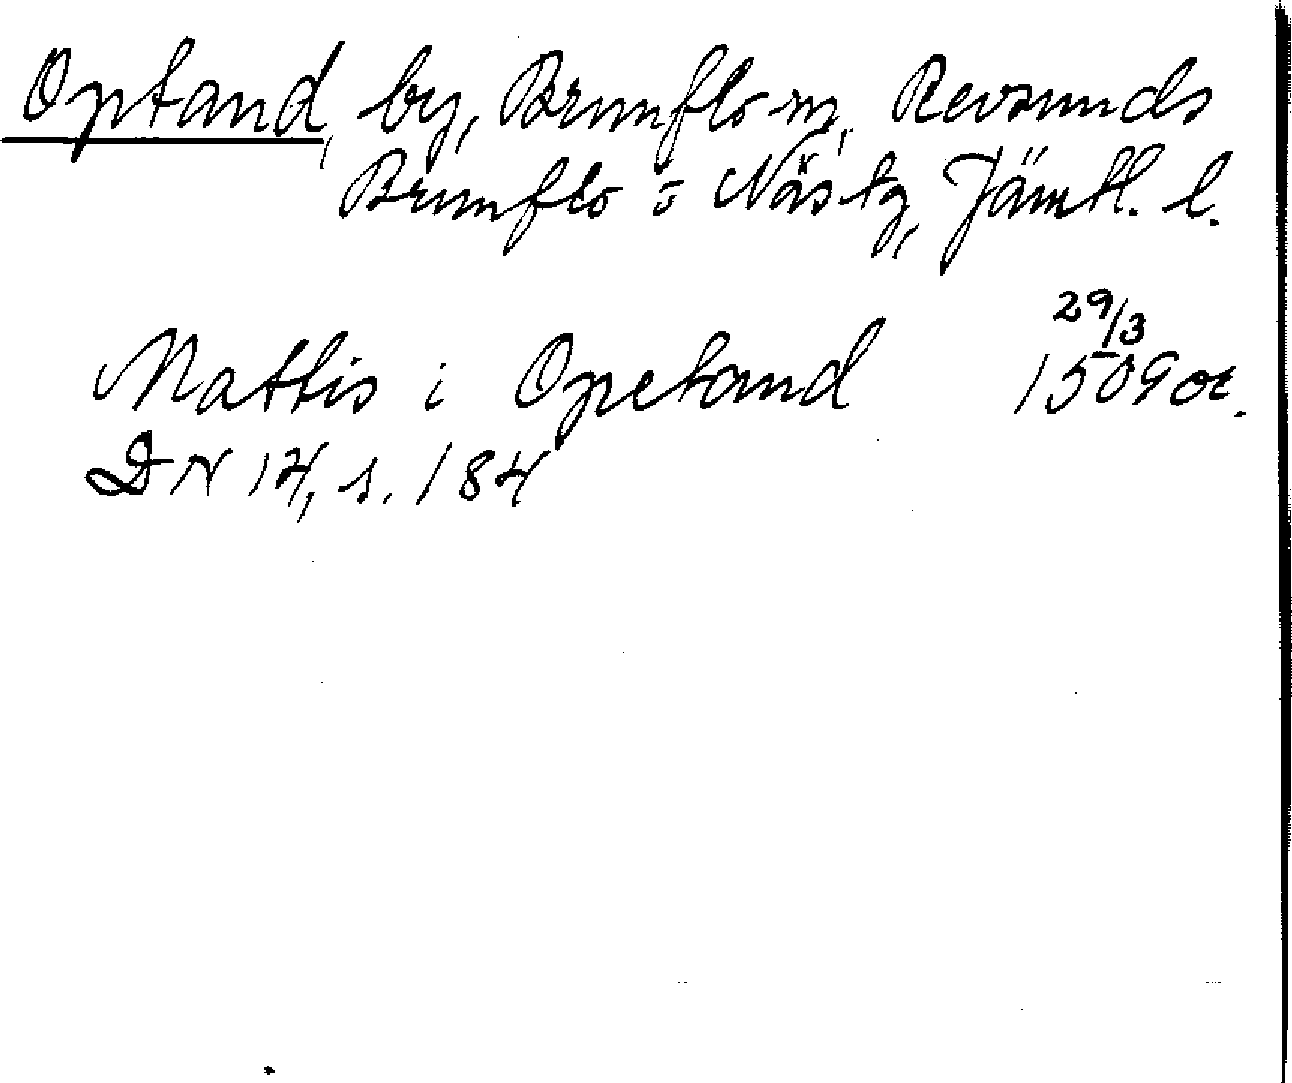 Optand, by, Brunflo sn, Revsunds
Brunflo o Näs tg, Jämtl. l.
29/3
Mattis i Opetand 1509 or.
DN 14, s. 184